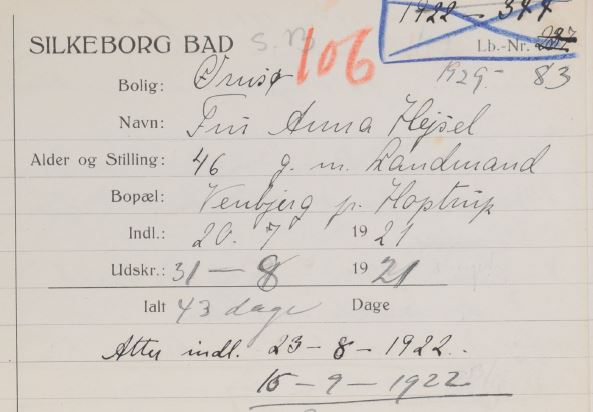 1922 - 344
SILKEBORG BAD S.B 106 Lb.-Nr. 227
1929- 83
Bolig: Ørnsø
Navn: Fru Anna Hejsel
Alder og Stilling: 46 g. m. Landmand
Bopæl: Venbjerg p. Hoptrup
Indl.: 20. 7 1921
Udskr.: 31 - 8 1921
Ialt 43 dage Dage
Atter indl. 23 - 8 - 1922.
15 - 9 - 1922